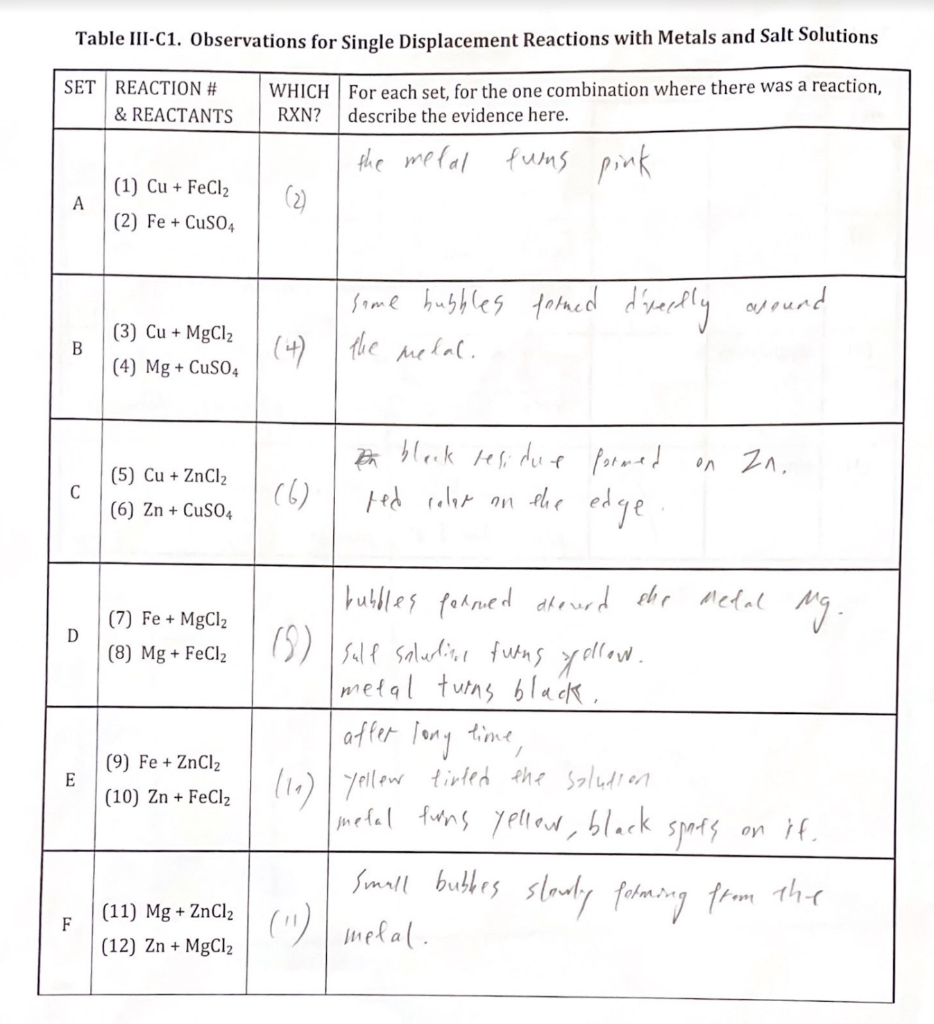 Table III-C1. Observations for Single Displacement Reactions with Metals and Salt Solutions
SET
REACTION #
& REACTANTS
WHICH
RXN?
For each set, for the one combination where there was a reaction,
describe the evidence here.
A
(1) Cu + FeCl₂
(2) Fe + CuSO₄
(2)
the metal turns pink
B
(3) Cu + MgCl₂
(4) Mg + CuSO₄
(4)
Some bubbles formed directly around
the metal.
C
(5) Cu + ZnCl₂
(6) Zn + CuSO₄
(6)
black residue formed on Zn.
red color on the edge.
D
(7) Fe + MgCl₂
(8) Mg + FeCl₂
(8)
bubbles formed around the metal Mg.
Salt solution turns yellow.
metal turns black.
E
(9) Fe + ZnCl₂
(10) Zn + FeCl₂
(10)
after long time,
yellow tinted the solution
metal turns yellow, black spots on it.
F
(11) Mg + ZnCl₂
(12) Zn + MgCl₂
(11)
Small bubbes slowly forming from the
metal.